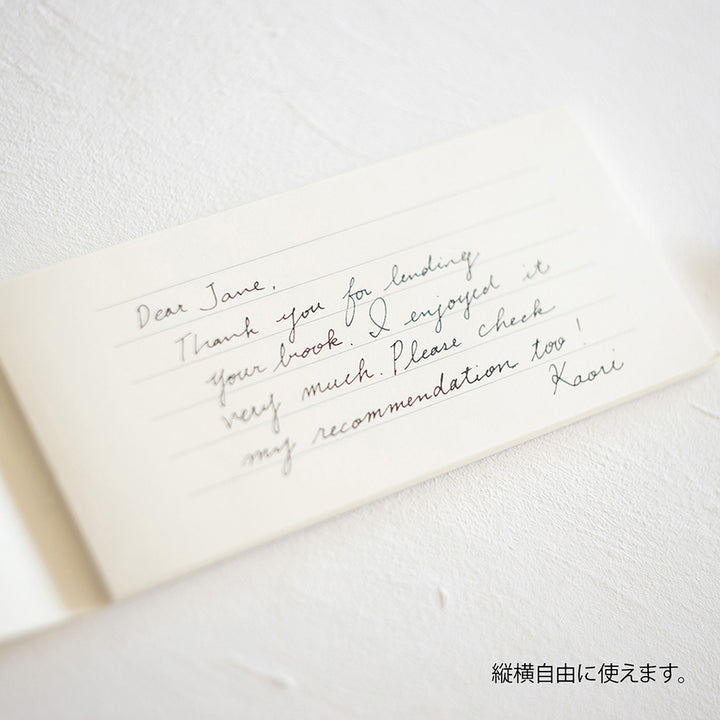 Dear Jane,
Thank you for lending
your book. I enjoyed it
very much. Please check
my recommendation too!
Kaori
縦横自由に使えます。